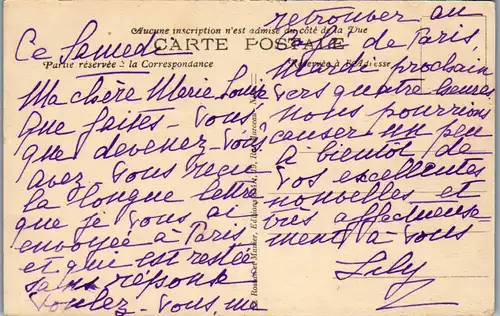 Aucune inscription n'est admise du côté de la Vue
CARTE POSTALE
Partie réservée à la Correspondance
Réservée à l'Adresse
Ce Samedi
Ma chère Marie Louise
Que faites-vous,
que devenez-vous
avez vous reçu
la longue lettre
que je vous ai
envoyée à Paris
et qui est restée
sans réponse
voulez-vous me
retrouver au
de Paris,
Mardi prochain
vers quatre heures
nous pourrions
causer un peu
à bientôt de
vos excellentes
nouvelles et
très affectueuse-
ment à vous
Lily